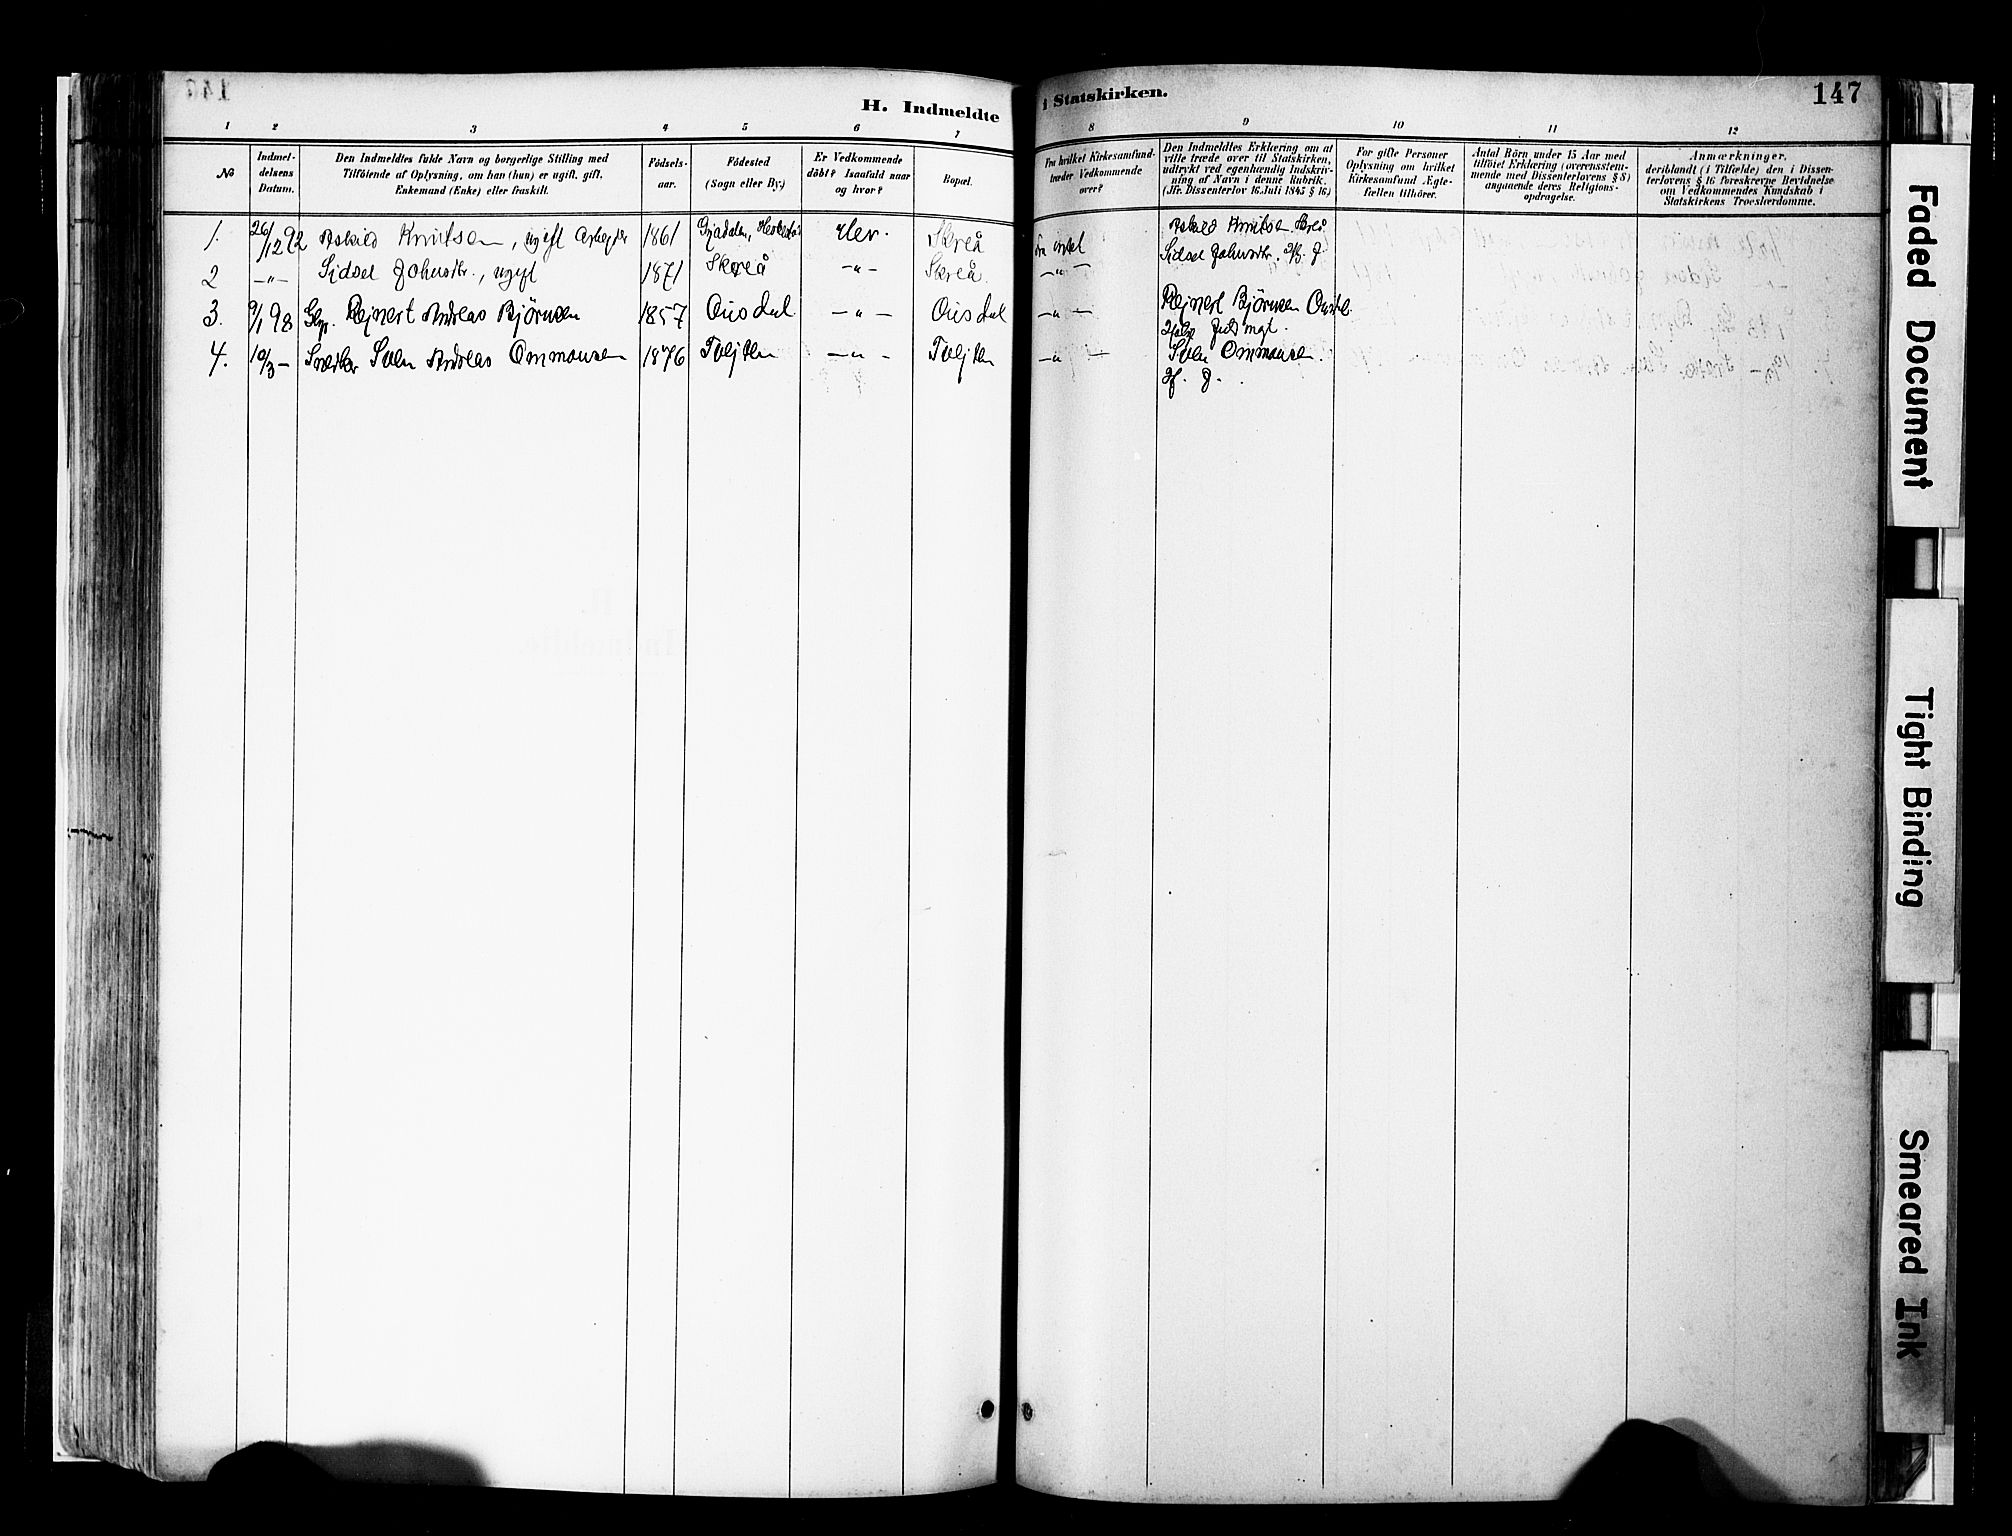 H. Indmeldte i Statskirken.
147
1 2 3 4 5 6 7 8 9 10 11 12
No
Indmel-
delsens
Datum.
Den Indmeldtes fulde Navn og borgerlige Stilling med
Tilföiende af Oplysning, om han (hun) er ugift, gift,
Enkemand (Enke) eller fraskilt.
Födsels-
aar.
Födested
(Sogn eller By.)
Er Vedkommende
döbt? Isaafald naar
og hvor?
Bopæl.
Fra hvilket Kirkesamfund
træder Vedkommende
over?
Den Indmeldtes Erklæring om at
ville træde over til Statskirken,
udtrykt ved egenhændig Indskriv-
ning af Navn i denne Rubrik.
(Jfr. Dissenterlov 16 Juli 1845 § 16.)
For gifte Personer
Oplysning om hvilket
Kirkesamfund Ægte-
fællen tilhörer.
Antal Börn under 15 Aar med
tilföiet Erklæring (overensstem-
mende med Dissenterlovens § 8)
angaaende deres Religions-
opdragelse.
Anmærkninger,
deriblandt (i Tilfælde) den i Dissen-
terlovens § 16 foreskrevne Bevidnelse
om Vedkommendes Kundskab i
Statskirkens Troeslærdomme.
1. 26/12 92 Askild Knutsen, ugift Arbejder 1861 Gjadalen, Skreå Askild Knutsen Skreå
2 -"- Sidsel Johnsdtr., ugift 1871 Skreå -"- Skreå. -"- Sidsel Johnsdtr.
3. 9/1 98 Rejnert Andreas Björnsen 1857 Ousdal -"- Ousdal -"- Rejnert Björnsen Ousdal
4. 10/3 - Sven Andreas Ommonsen 1876 Tvejten -"- Tvejten -"- Sven Ommonsen.
Faded Document
Tight Binding
Smeared Ink